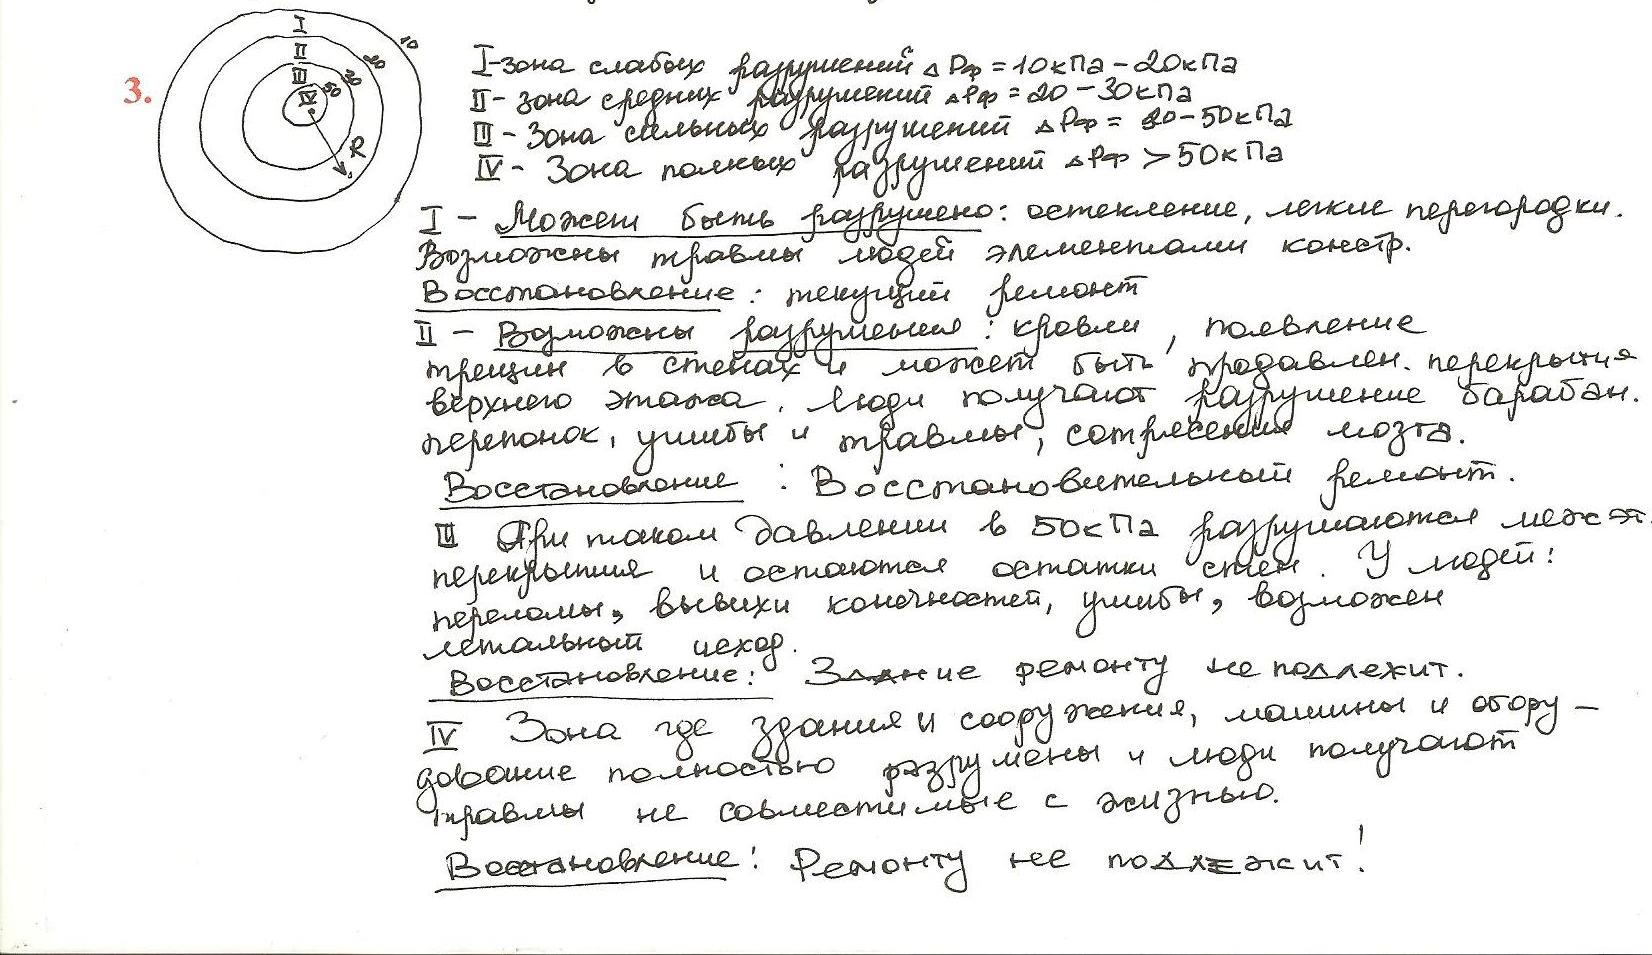 3.
I
II
III
IV
50
30
20
10
R
I-зона слабых разрушений ΔPф = 10кПа - 20кПа
II - зона средних разрушений ΔPф = 20 - 30кПа
III - Зона сильных разрушений ΔPф = 30-50кПа
IV - Зона полных разрушений ΔPф > 50кПа
I - Может быть разрушено: остекление, легкие перегородки.
Возможны травмы людей элементами констр.
Восстановление: текущий ремонт
II - Возможны разрушения: кровли, появление
трещин в стенах и может быть продавлен. перекрытия
верхнего этажа. Люди получают разрушение барабан.
перепонок, ушибы и травмы, сотрясения мозга.
Восстановление: Восстановительный ремонт.
III При таком давлении в 50кПа разрушаются межэт.
перекрытия и остаются остатки стен. У людей:
переломы, вывихи конечностей, ушибы, возможен
летальный исход.
Восстановление: Здание ремонту не подлежит.
IV Зона где здания и сооружения, машины и обору-
дование полностью разрушены и люди получают
травмы не совместимые с жизнью.
Восстановление: Ремонту не подлежит!